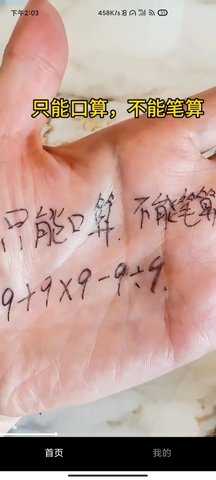 下午2:03
458K/s
只能口算，不能笔算
只能口算.不能笔算
9+9×9-9÷9.
首页
我的